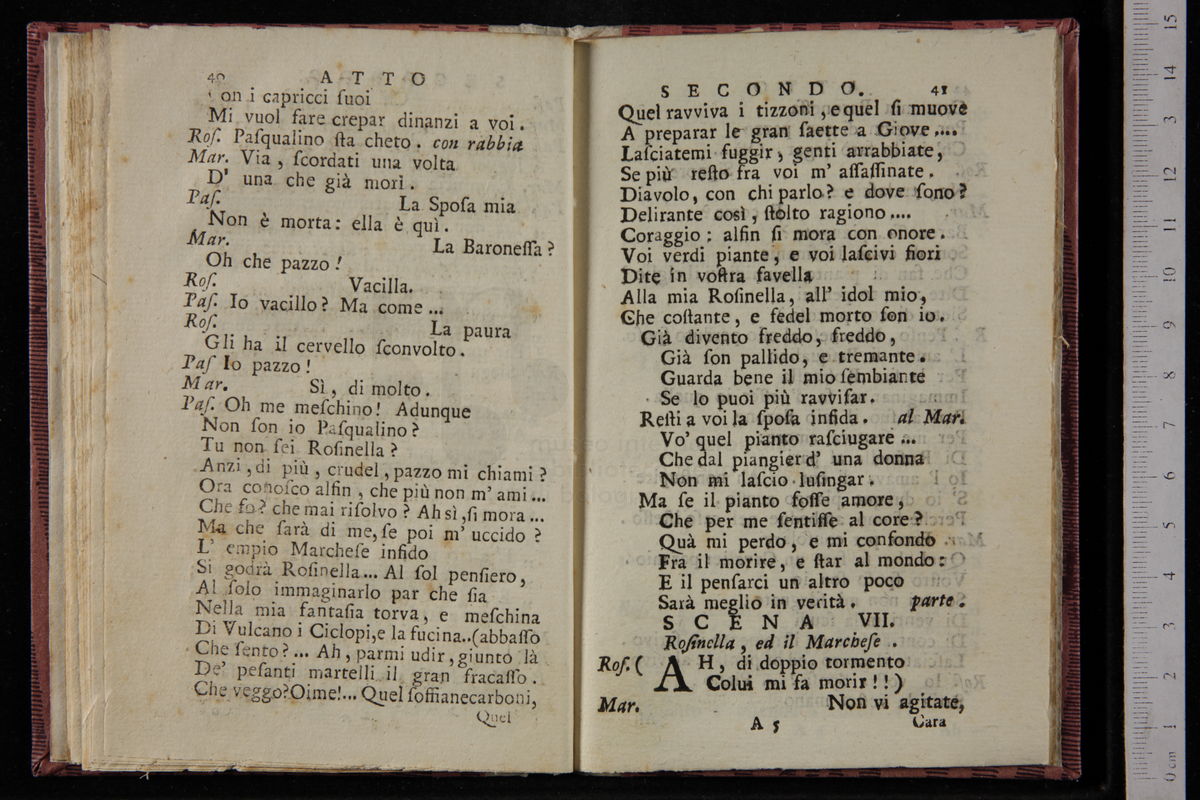 40 ATTO
on i capricci ſuoi
Mi vuol fare crepar dinanzi a voi.
Roſ. Paſqualino ſta cheto. con rabbia
Mar. Via, ſcordati una volta
D' una che già morì.
Paſ. La Spoſa mia
Non è morta: ella è quì.
Mar. La Baroneſſa?
Oh che pazzo!
Roſ. Vacilla.
Paſ. Io vacillo? Ma come...
Roſ. La paura
Gli ha il cervello ſconvolto.
Paſ Io pazzo!
Mar. Sì, di molto.
Paſ. Oh me meſchino! Adunque
Non ſon io Paſqualino?
Tu non ſei Roſinella?
Anzi, di più, crudel, pazzo mi chiami?
Ora conoſco alfin, che più non m' ami...
Che fo? che mai riſolvo? Ah sì, ſi mora...
Ma che ſarà di me, ſe poi m' uccido?
L' empio Marcheſe infido
Si godrà Roſinella... Al ſol penſiero,
Al ſolo immaginarlo par che ſia
Nella mia fantaſia torva, e meſchina
Di Vulcano i Ciclopi, e la fucina..(abbaſſo
Che ſento?... Ah, parmi udir, giunto là
De' peſanti martelli il gran fracaſſo.
Che veggo? Oime!... Quel ſoffianecarboni,
Quel
SECONDO. 41
Quel ravviva i tizzoni, e quel ſi muove
A preparar le gran ſaette a Giove....
Laſciatemi fuggir, genti arrabbiate,
Se più reſto fra voi m' aſſaſſinate.
Diavolo, con chi parlo? e dove ſono?
Delirante così, ſtolto ragiono....
Coraggio: alfin ſi mora con onore.
Voi verdi piante, e voi laſcivi fiori
Dite in voſtra favella
Alla mia Roſinella, all' idol mio,
Che coſtante, e fedel morto ſon io.
Già divento freddo, freddo,
Già ſon pallido, e tremante.
Guarda bene il mio ſembiante
Se lo puoi più ravviſar.
Reſti a voi la ſpoſa infida. al Mar.
Vo' quel pianto raſciugare...
Che dal piangier d' una donna
Non mi laſcio luſingar.
Ma ſe il pianto foſſe amore,
Che per me ſentiſſe al core?
Quà mi perdo, e mi confondo
Fra il morire, e ſtar al mondo:
E il penſarci un altro poco
Sarà meglio in verità. parte.
SCENA VII.
Roſinella, ed il Marcheſe.
Roſ. ( AH, di doppio tormento
Colui mi fa morir!!)
Mar. Non vi agitate,
A 5 Cara
0 cm 1 2 3 4 5 6 7 8 9 10 11 12 13 14 15